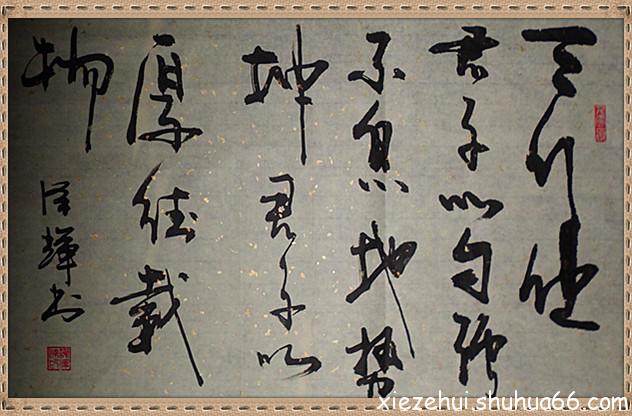 天行健
君子以自强
不息地势
坤君子以
厚德載
物
泽輝书
xiezehui.shuhua66.com